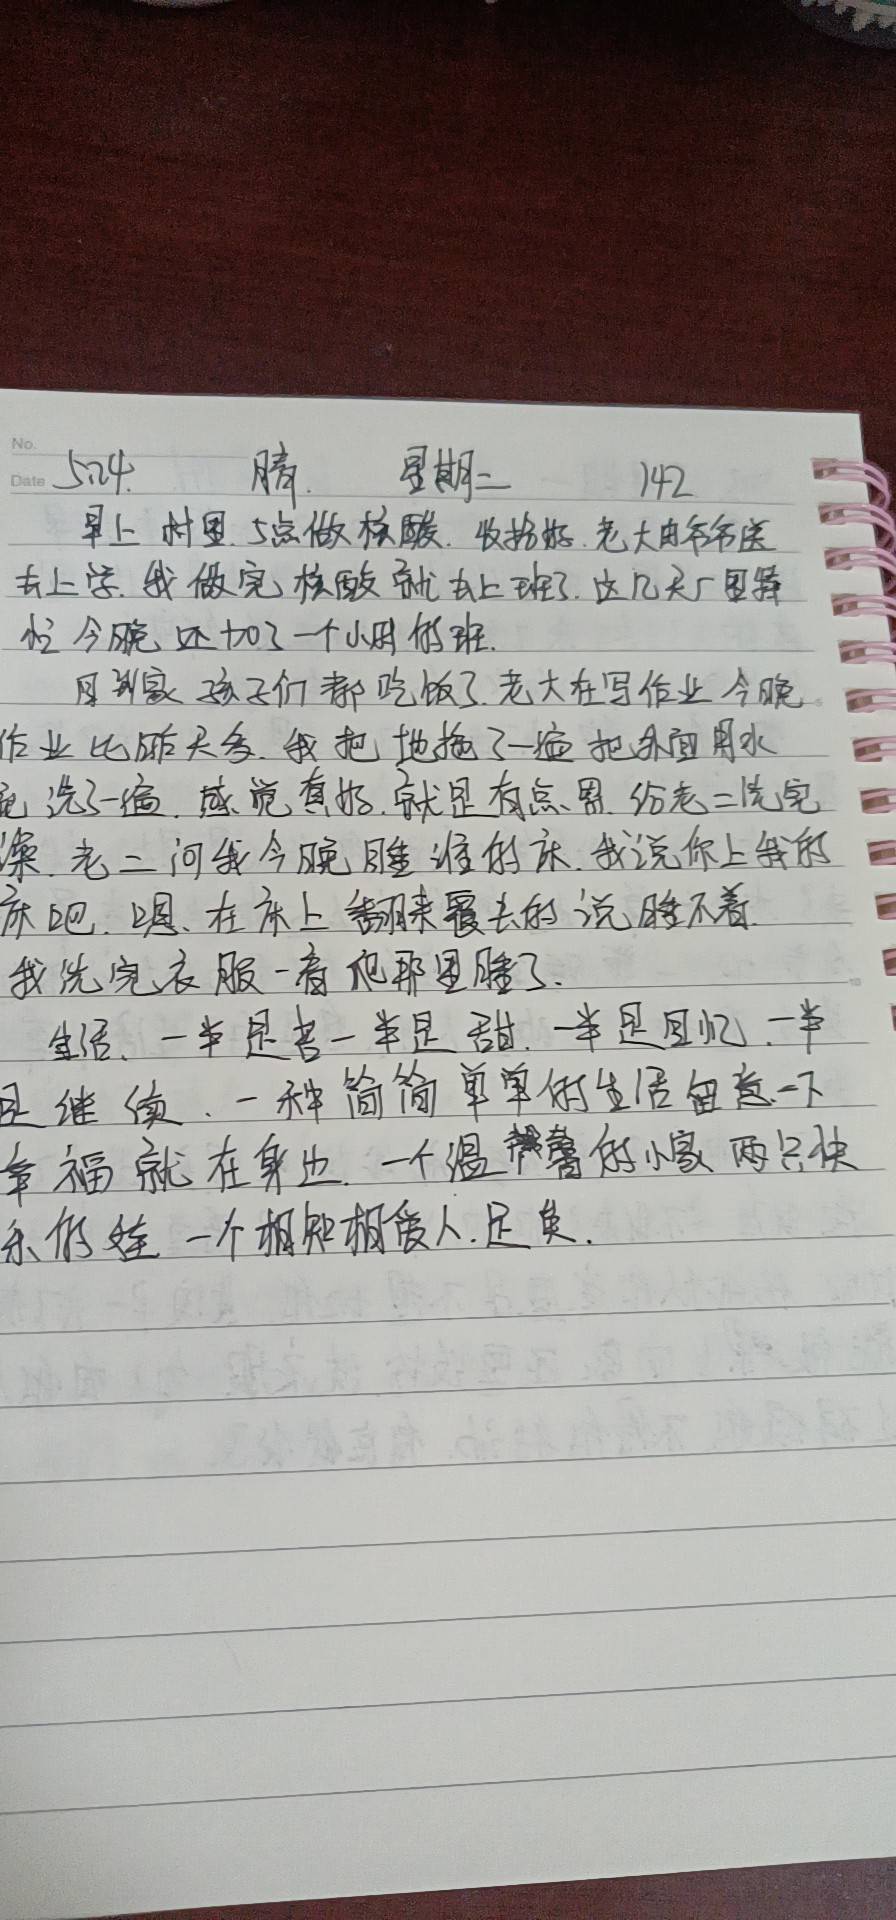 No.
Date 5.24. 晴. 星期二 142
早上村里.5点做核酸.收拾好.老大由爷爷送
去上学.我做完核酸就去上班了.这几天厂里特
忙今晚还加了一个小时的班.
回到家孩子们都吃饭了.老大在写作业今晚
作业比昨天多.我把地拖了一遍把外面用水
洗了一遍.感觉真好.就是有点累.给老二洗完
澡.老二问我今晚睡谁的床.我说你上我的
床吧.嗯.在床上翻来覆去的说睡不着.
我洗完衣服一看他那里睡了.
生活.一半是苦一半是甜.一半是回忆.一半
是继续.一种简简单单的生活留意一下
幸福就在身边.一个温馨的小家两只快
乐的娃一个相知相爱人.足矣.